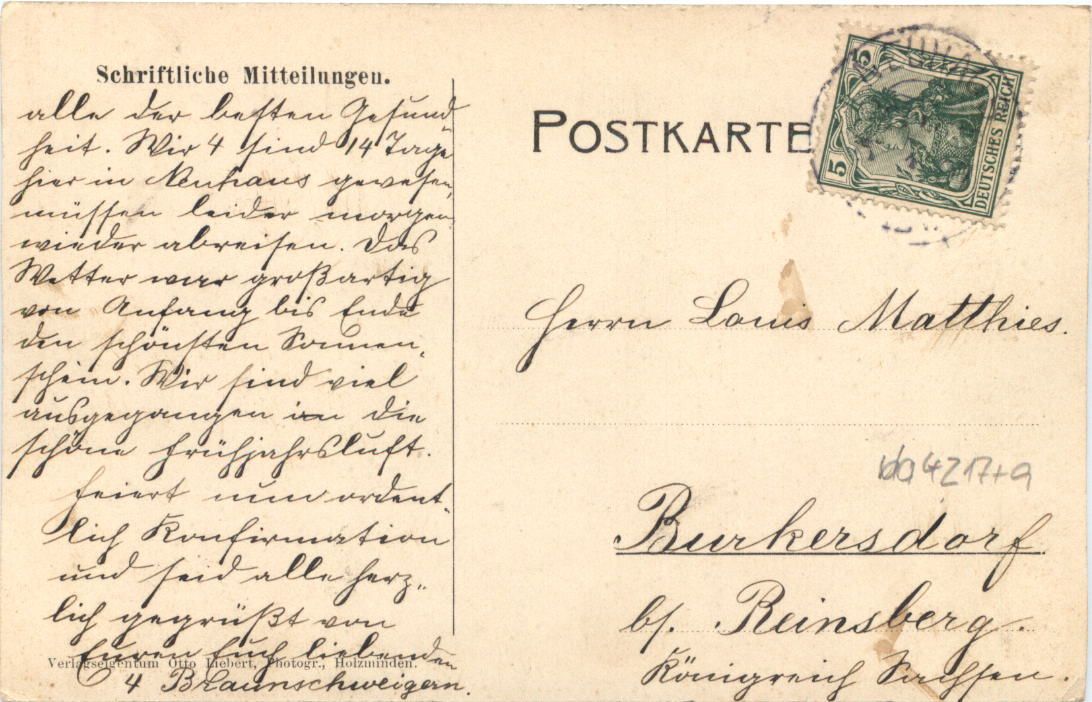 Schriftliche Mitteilungen.
alle der besten Gesund
heit. Wir 4 sind 14 Tage
hier in Neuhaus gewesen,
müssen leider morgen
wieder abreisen. Das
Wetter war großartig
von Anfang bis Ende
den schönsten Sonnen,
schein. Wir sind viel
ausgegangen in die
schöne Frühjahrsluft.
Feiert nun ordent-
lich Konfirmation
und seid alle herz-
lich gegrüßt von
Euren Euch liebenden
4 Braunschweigern.
Verlagseigentum Otto Liebert, Photogr., Holzminden.
POSTKARTE
5 5
DEUTSCHES REICH
Herrn Louis Matthies.
Burkersdorf.
b/. Reinsberg.
Königreich Sachsen.